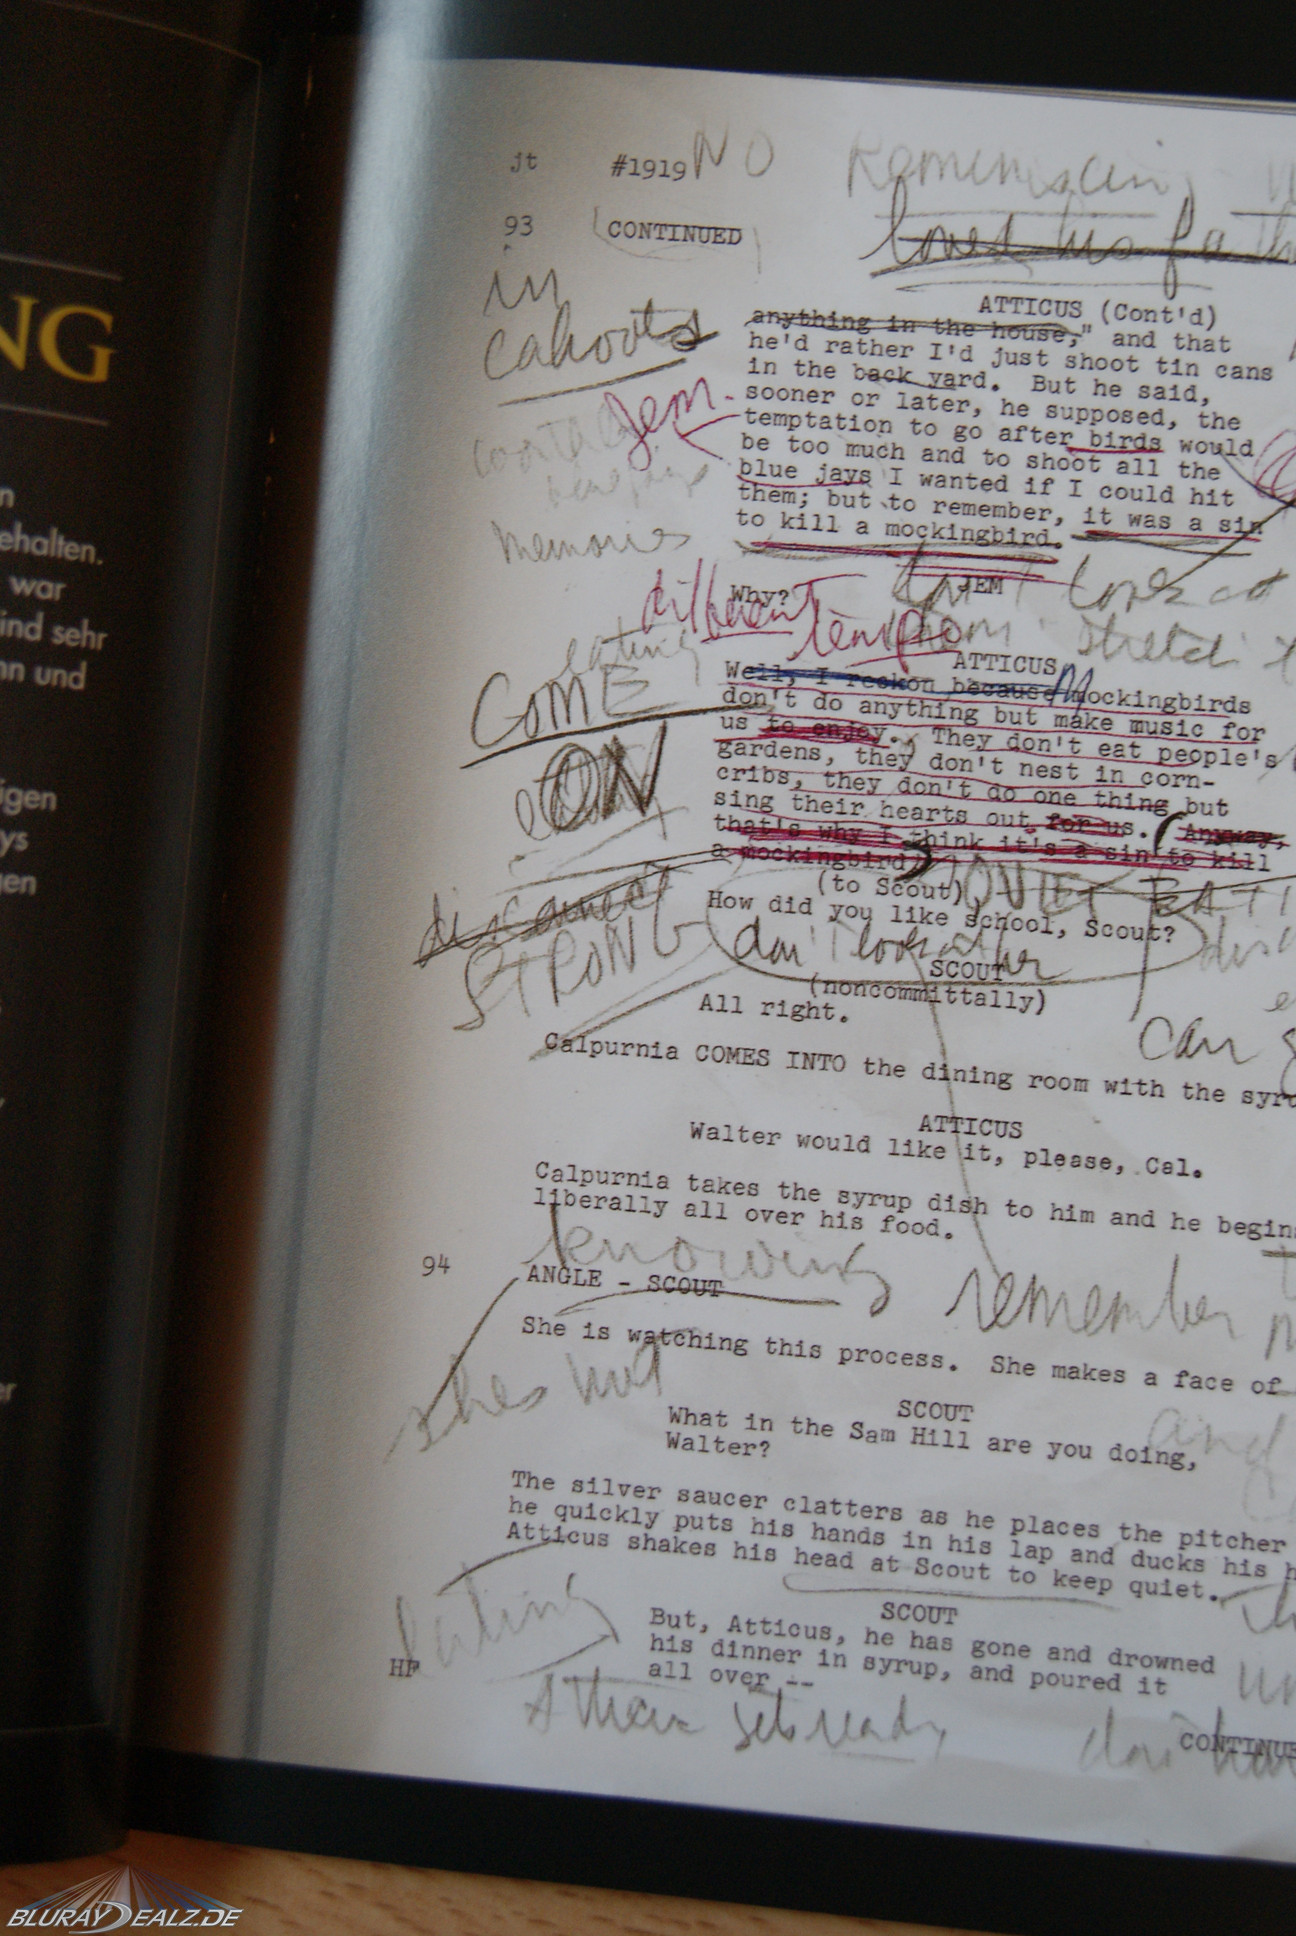 NG
n
ehalten.
war
ind sehr
nn und
igen
ys
gen
er
jt #1919 NO Reminiscing
loved his fath
93 CONTINUED
in
cahoots
ATTICUS (Cont'd)
anything in the house," and that
he'd rather I'd just shoot tin cans
in the back yard. But he said,
sooner or later, he supposed, the
Jem
temptation to go after birds would
be too much and to shoot all the
blue jays I wanted if I could hit
them; but to remember, it was a sin
to kill a mockingbird.
memories
JEM
Why?
different tempo
don't look at
them stretch
eating
ATTICUS
Well, I reckon because mockingbirds
M
don't do anything but make music for
us to enjoy. They don't eat people's
gardens, they don't nest in corn-
cribs, they don't do one thing but
sing their hearts out for us. Anyway,
that's why I think it's a sin to kill
a mockingbird)
COME
ON
STRONG
(to Scout)
QUIET EATI
How did you like school, Scout?
don't look at her
SCOUT
(noncommittally)
All right.
can
Calpurnia COMES INTO the dining room with the syru
ATTICUS
Walter would like it, please, Cal.
Calpurnia takes the syrup dish to him and he begins
liberally all over his food.
knowing
94 ANGLE - SCOUT
remember
She is watching this process. She makes a face of
shes
SCOUT
What in the Sam Hill are you doing,
Walter?
and
The silver saucer clatters as he places the pitcher
he quickly puts his hands in his lap and ducks his h
Atticus shakes his head at Scout to keep quiet.
eating
SCOUT
But, Atticus, he has gone and drowned
his dinner in syrup, and poured it
all over --
HF
gets ready
CONTINUE
BLURAYDEALZ.DE